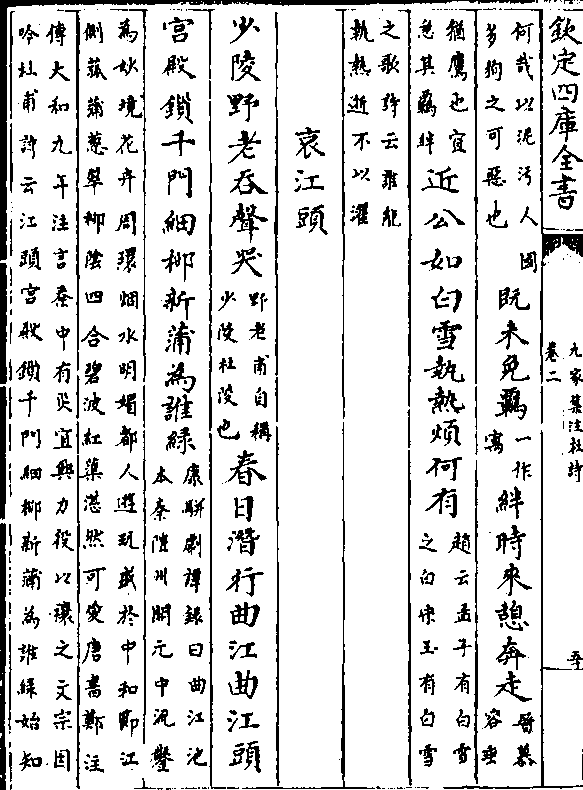 欽定四庫全書
九家集注杜詩
卷二
何哉以泥污人
多拘之可惡也
既未免羈
一作
寓
絆時來憩奔走
晉慕
容垂
猶鷹也宜
急其羈絆
近公如白雪執熱煩何有
趙云孟子有白雪
之白宋玉有白雪
之歌詩云誰能
執熱逝不以濯
哀江頭
少陵野老吞聲哭
野老甫自稱
少陵杜陵也
春日潛行曲江曲江頭
宮殿鎖千門細柳新蒲為誰緑
康駢劇譚録曰曲江池
本秦隑州開元中疏鑿
為妙境花卉周環烟水明媚都人遊玩盛於中和節江
側菰蒲葱翠柳陰四合碧波紅蕖湛然可愛唐書鄭注
傳大和九年注言秦中有災宜興力役以禳之文宗因
吟杜甫詩云江頭宮殿鎖千門細柳新蒲為誰緑始知